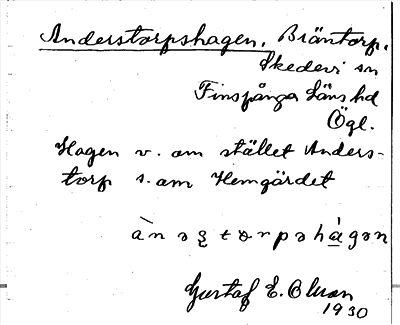 Anderstorpshagen, Bräntorp,
Skedevi sn
Finspånga läns hd
Ögl.
Hagen v. om stället Anders-
torp s. om Hemgärdet
Gustaf E. Olsson
1930